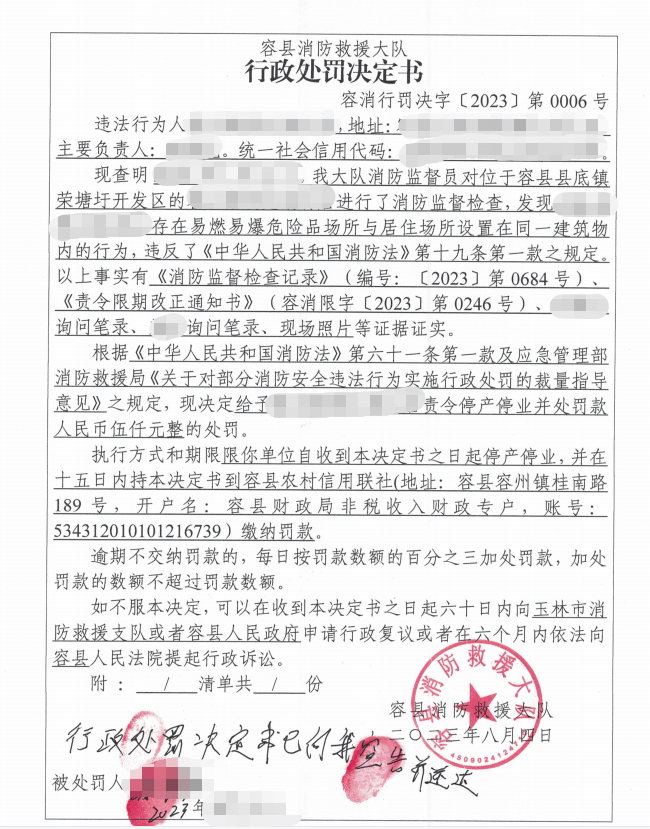 容县消防救援大队
行政处罚决定书
容消行罚决字〔2023〕第 0006 号
违法行为人 ,地址:
主要负责人: 。统一社会信用代码: 。
现查明 ，我大队消防监督员对位于容县县底镇
荣塘圩开发区的 进行了消防监督检查，发现
存在易燃易爆危险品场所与居住场所设置在同一建筑物
内的行为，违反了《中华人民共和国消防法》第十九条第一款之规定。
以上事实有《消防监督检查记录》（编号：〔2023〕第 0684 号）、
《责令限期改正通知书》（容消限字〔2023〕第 0246 号）、
询问笔录、 询问笔录、现场照片等证据证实。
根据《中华人民共和国消防法》第六十一条第一款及应急管理部
消防救援局《关于对部分消防安全违法行为实施行政处罚的裁量指导
意见》之规定，现决定给予 责令停产停业并处罚款
人民币伍仟元整的处罚。
执行方式和期限限你单位自收到本决定书之日起停产停业，并在
十五日内持本决定书到容县农村信用联社(地址：容县容州镇桂南路
189 号，开户名：容县财政局非税收入财政专户，账号：
534312010101216739）缴纳罚款。
逾期不交纳罚款的，每日按罚款数额的百分之三加处罚款，加处
罚款的数额不超过罚款数额。
如不服本决定，可以在收到本决定书之日起六十日内向玉林市消
防救援支队或者容县人民政府申请行政复议或者在六个月内依法向
容县人民法院提起行政诉讼。
附： / 清单共 / 份
容县消防救援大队
容县消防救援大队
二〇二三年八月四日
行政处罚决定书已向其宣告并送达
被处罚人
2023年